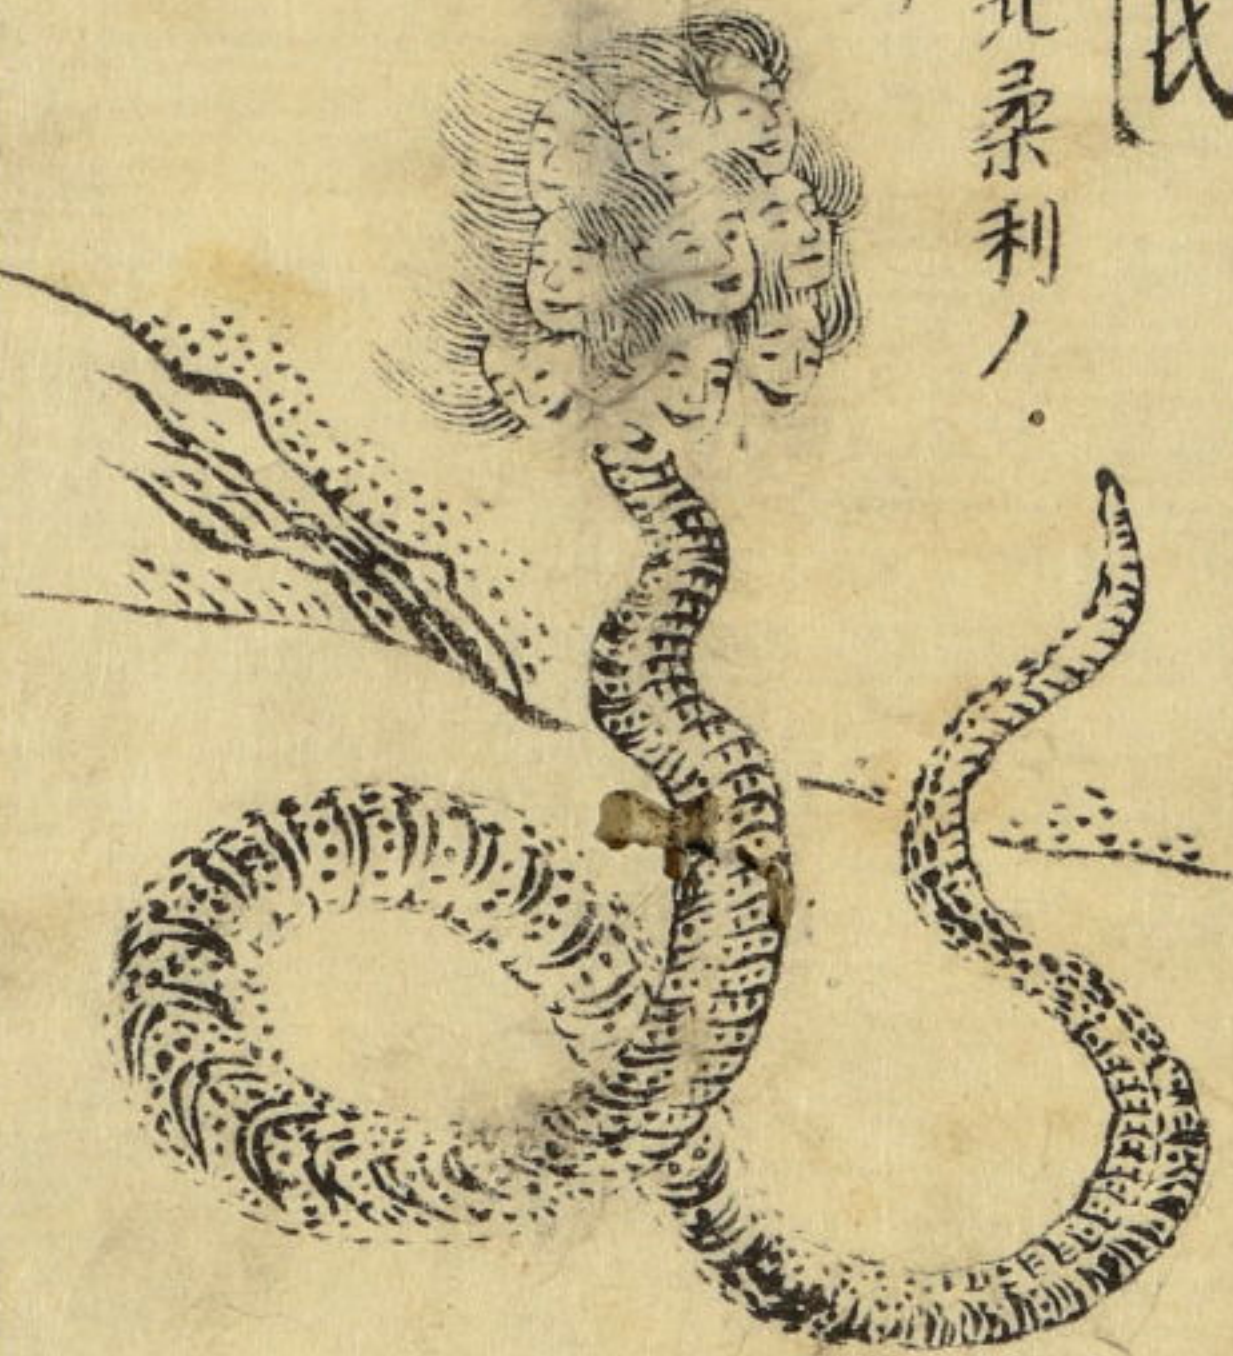 氏
北柔利ノ